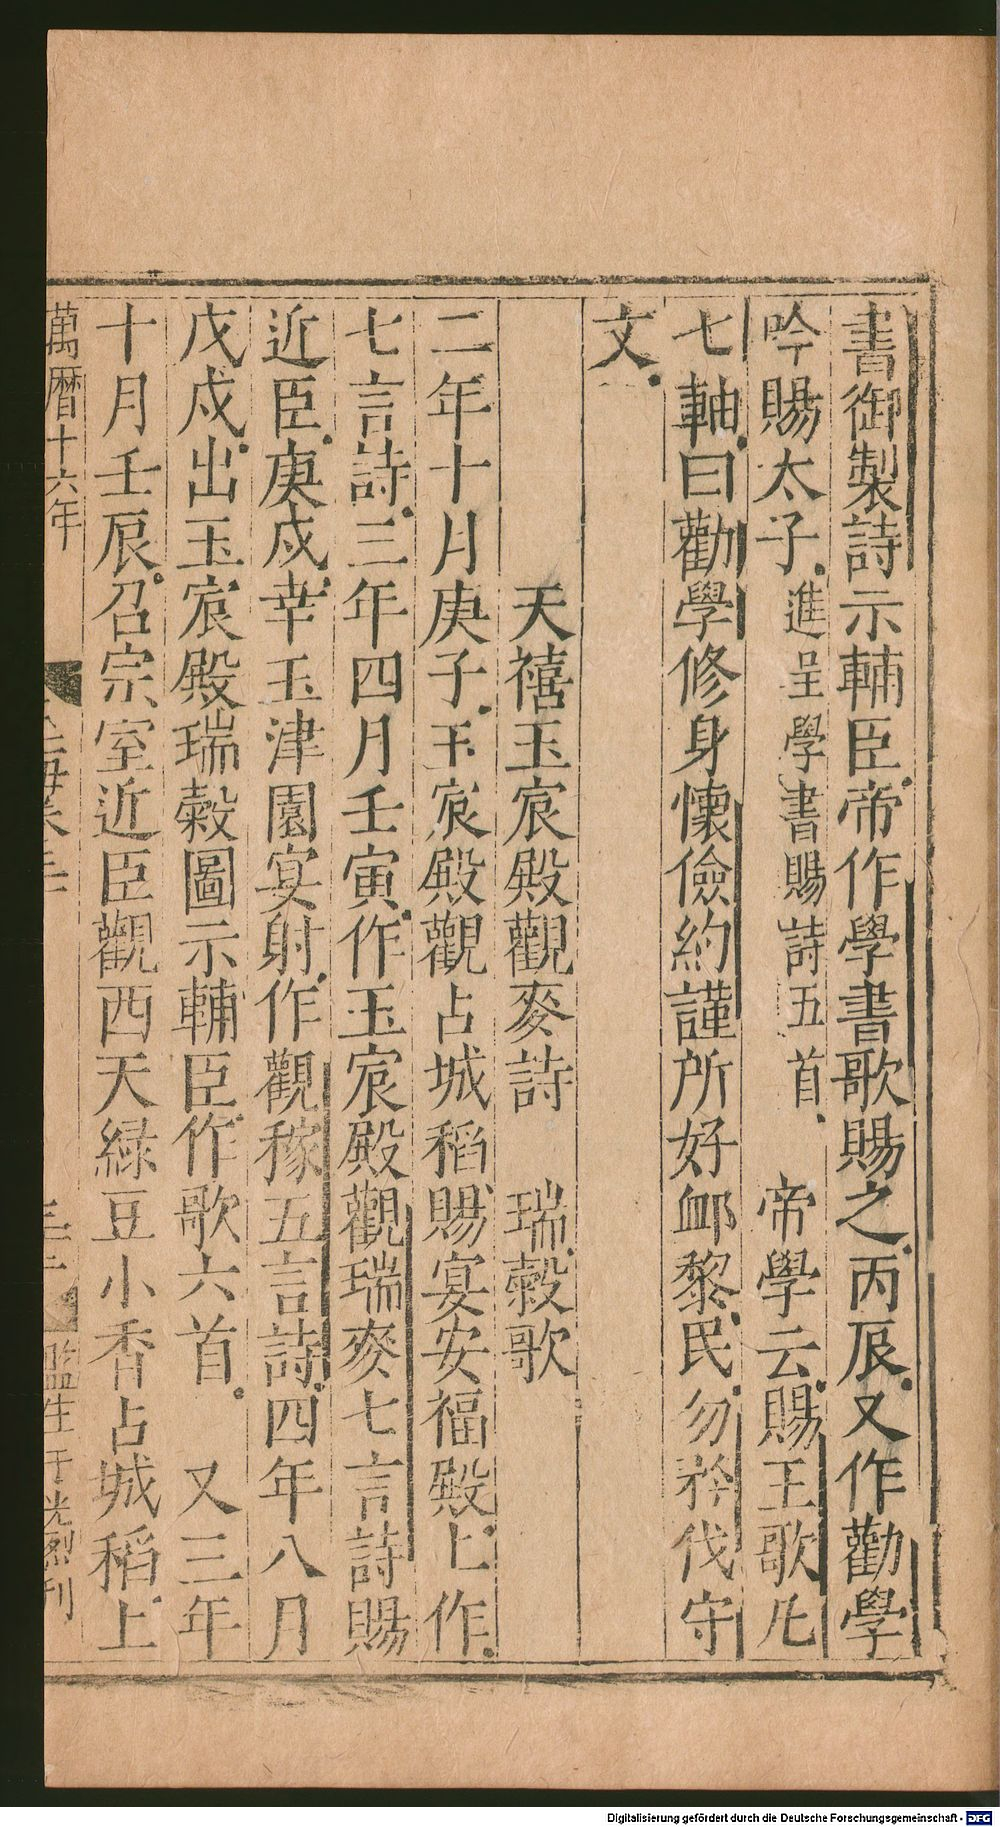 書御製詩示輔臣帝作學書歌賜之丙辰又作勸學
吟賜太子進呈學書賜詩五首 帝學云賜王歌凡
七軸曰勸學修身懷儉約謹所好卹黎民勿矜伐守
文
天禧玉宸殿觀麥詩 瑞穀歌
二年十月庚子玉宸殿觀占城稻賜宴安福殿上作
七言詩三年四月壬寅作玉宸殿觀瑞麥七言詩賜
近臣庚戌幸玉津園宴射作觀稼五言詩四年八月
戊戌出玉宸殿瑞穀圖示輔臣作歌六首 又三年
十月壬辰召宗室近臣觀西天綠豆小香占城稻上
萬曆十六年
監生于光烈刊
Digitalisierung gefördert durch die Deutsche Forschungsgemeinschaft - DFG